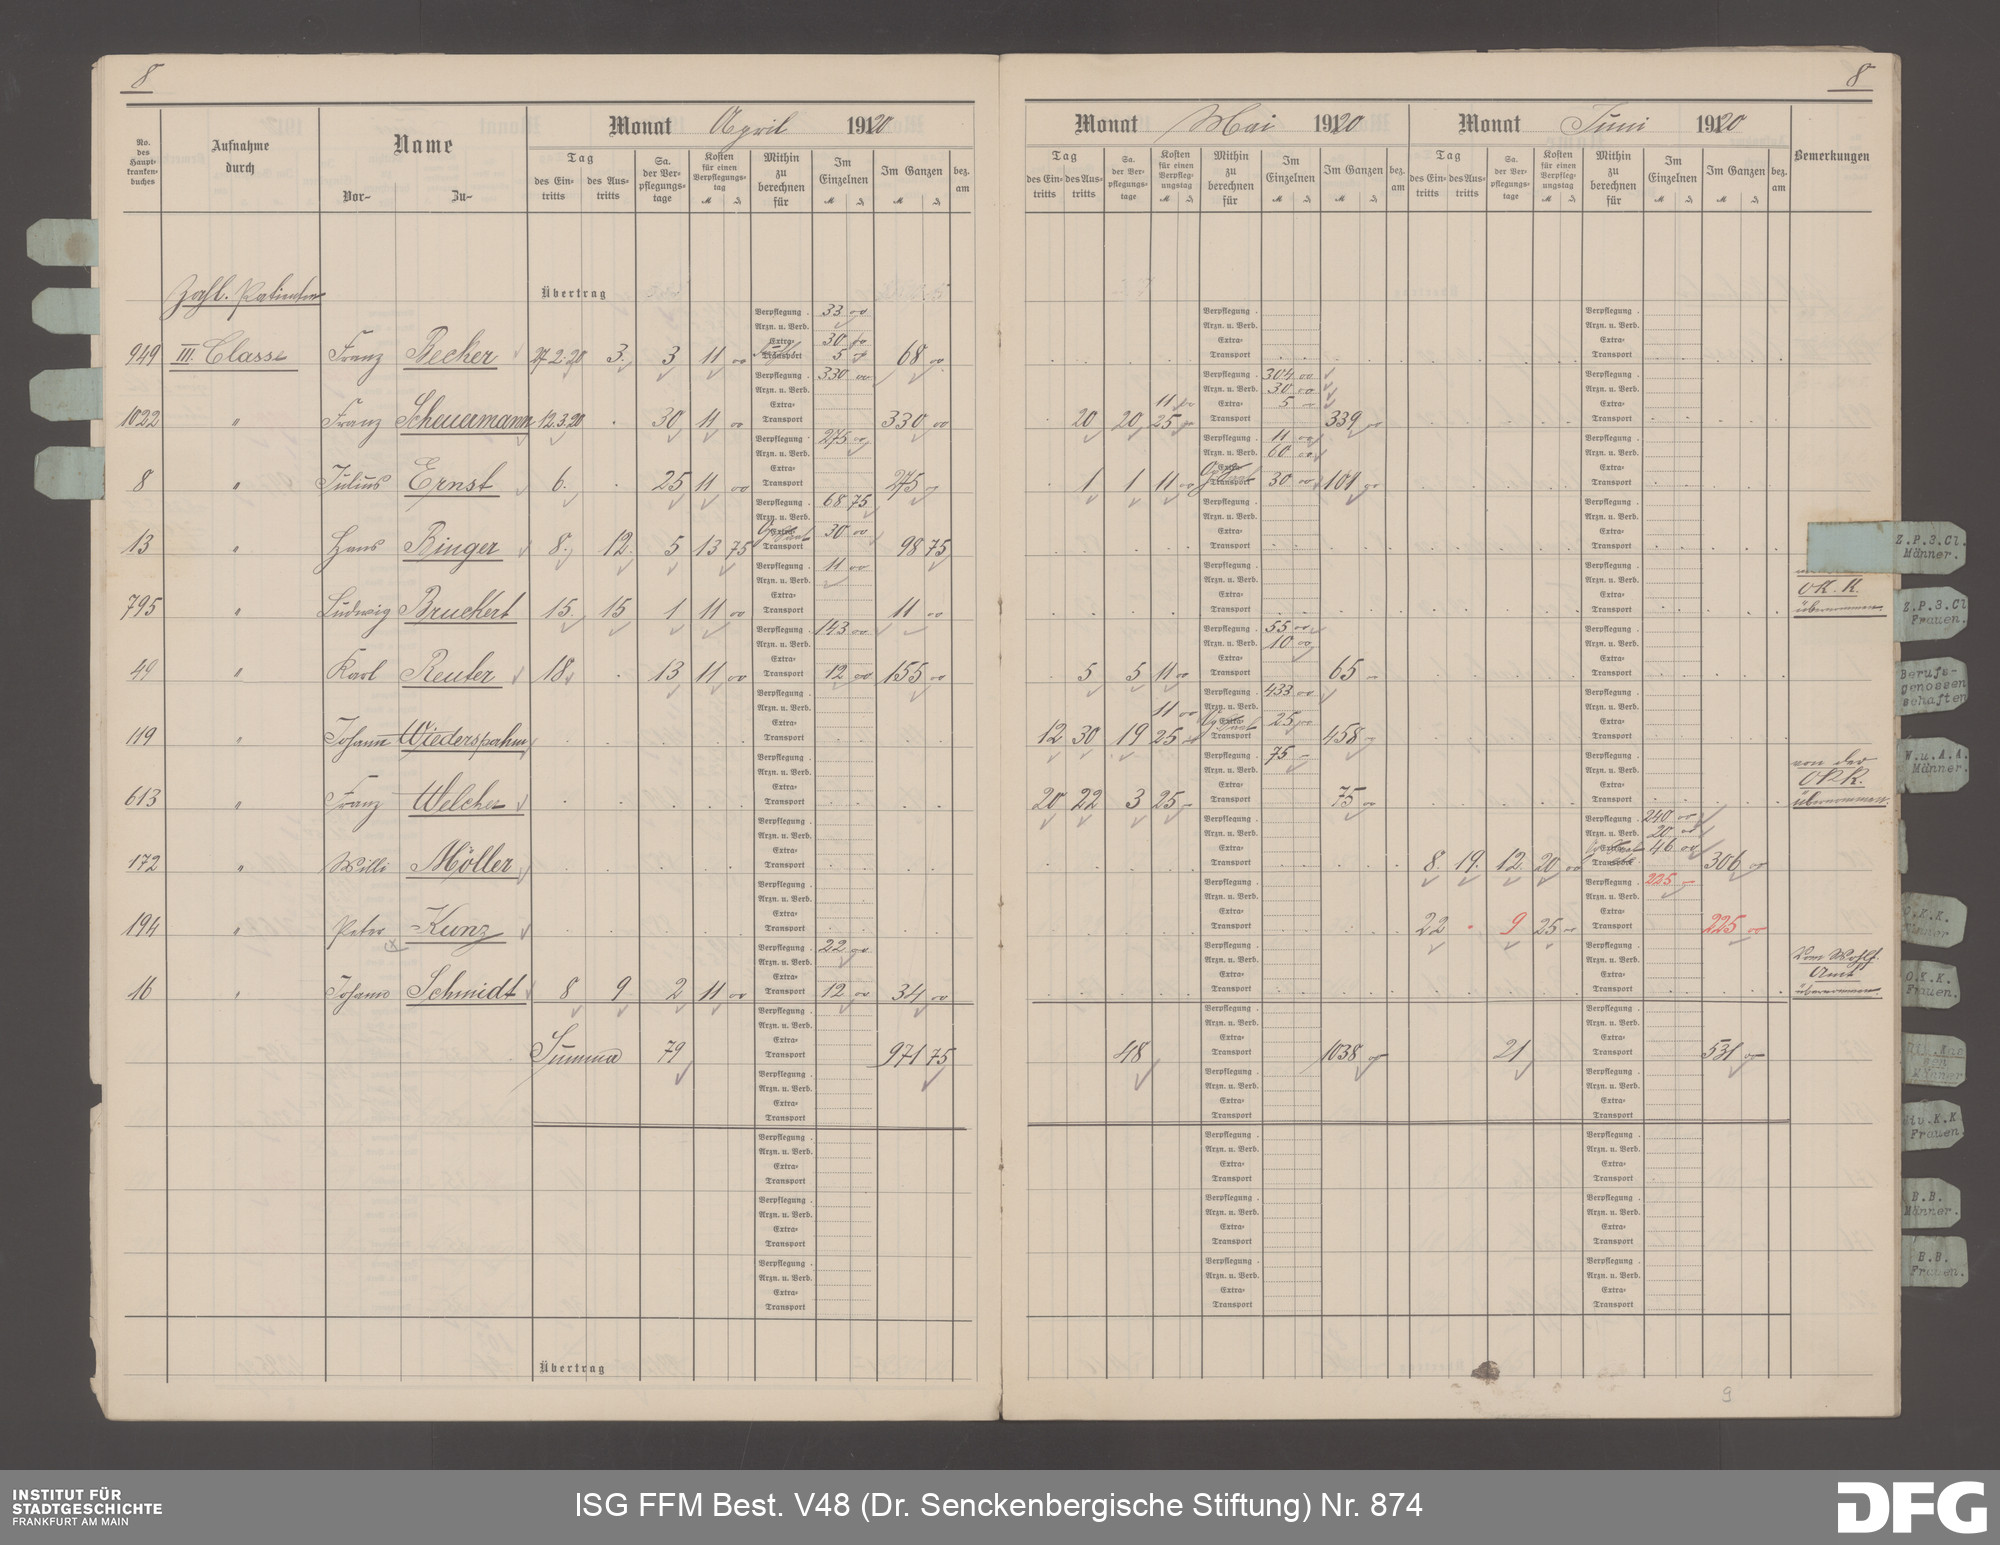 8
8
Monat April 1920
Monat Mai 1920
Monat Juni 1920
No. des Haupt-krankenbuches
Aufnahme durch
Name
Vor-
Zu-
Tag
des Eintritts
des Austritts
Sa. der Verpflegungstage
Kosten für einen Verpflegungstag
Mithin zu berechnen für
Im Einzelnen
Im Ganzen
bez. am
Bemerkungen
Zahl. Patienten
Übertrag
949 III. Classe Franz Becker 27.2.20 3. 3 11 00 33 00 30 00 5 68 00
1022 " Franz Scheuermann 12.3.20 . 30 11 00 330 00 330 00
20 20 11 25 304 00 30 00 5 – 339
8 " Julius Ernst 6. . 25 11 00 275 275
1 1 11 00 11 00 60 00 30 00 101
13 " Hans Binger 8. 12. 5 13 75 68 75 30 00 98 75
795 " Ludwig Bruckert 15. 15 1 11 00 11 00 11 00
O.K.K. übernommen.
49 " Karl Reuter 18 . 13 11 00 143 00 12 00 155 00
5 5 11 00 55 00 10 00 65 –
119 " Johann Wiederspahn
12 30 19 11 00 25 433 00 25 458
613 " Franz Welcher
20 22 3 25 – 75 – 75
von der O.K.K. übernommen.
172 " Willi Möller
8. 19. 12 20 00 240 00 20 46 00 306
194 " Peter Kunz
22 9 25 – 225 – 225 00
16 " Johann Schmidt 8 9 2 11 00 22 00 12 00 34 00
Vom Wohlf. Amt übernommen.
Summa 79 971 75
48 1038
21 531 00
Verpflegung
Arzn. u. Verb.
Extra-
Transport
Übertrag
9
Z.P.3.Cl. Männer.
Z.P.3.Cl Frauen.
Berufs-Genossenschaften
W.u.A.A. Männer.
O.K.K. Männer
O.K.K. Frauen.
Div.K.K Frauen.
B.B. Männer.
B.B. Frauen.
INSTITUT FÜR
STADTGESCHICHTE
FRANKFURT AM MAIN
ISG FFM Best. V48 (Dr. Senckenbergische Stiftung) Nr. 874
DFG